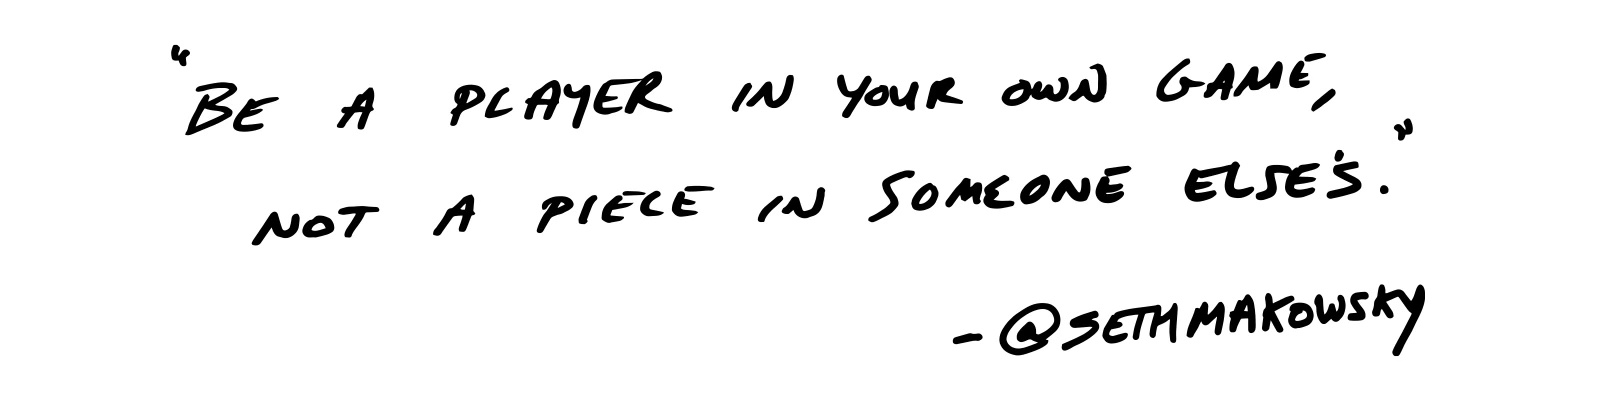 "BE A PLAYER IN YOUR OWN GAME,
NOT A PIECE IN SOMEONE ELSE'S."
- @SETHMAKOWSKY